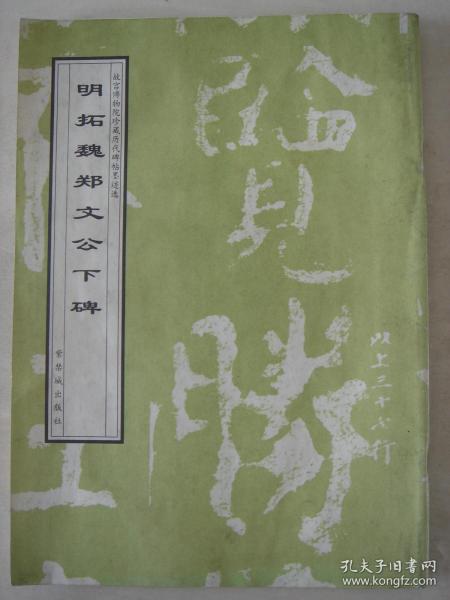 故宫博物院珍藏历代碑帖墨迹选
明拓魏郑文公下碑
紫禁城出版社
以上三十八行
孔夫子旧书网
www.kongfz.com